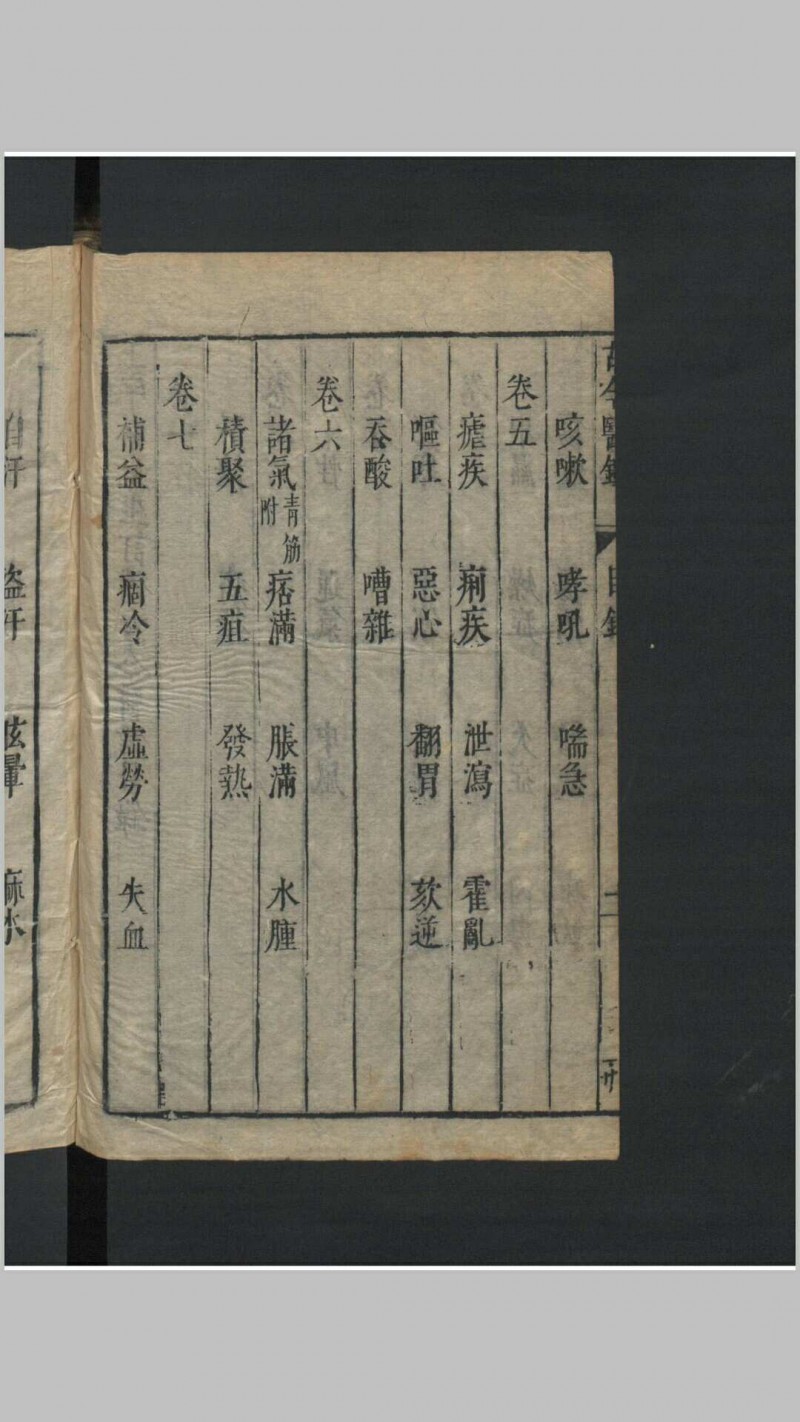 古今醫鑑 目錄 二
咳嗽 哮吼 喘急
卷五
瘧疾 痢疾 泄瀉 霍亂
嘔吐 惡心 翻胃 欬逆
吞酸 嘈雜
卷六
諸氣 青筋附 痞滿 脹滿 水腫
積聚 五疸 發熱
卷七
補益 痼冷 虛勞 失血
自汗 盜汗 眩暈 麻木